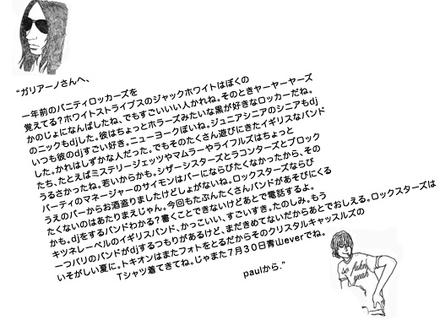 "ガリアーノさんへ、
一年前のバニティロッカーズを
覚えてる？ホワイトストライプスのジャックホワイトはぼくの
かのじょになんぱしたね、でもすごいいい人かれね。そのときヤーヤーヤーズ
のニックもdjした。彼はちょっとホラーズみたいな黒が好きなロッカーだね。
いつも彼のdjすごい好き。ニューヨークぽいね。ジュニアシニアのシニアもdj
した。かれはしずかな人だった。でもそのたくさん遊びにきたイギリスなバンド
たち、たとえばミステリージェッツやマムラーやライフルズはちょっと
うるさかったね。若いからかも。シザーシスターズとラコンターズとブロック
パーティのマネージャーのサイモンはバーにならびたくなかったから、その
うえのバーからお酒盗りましたけどしょがないね。ロックスターズならび
たくないのはあたりまえじゃん。今回もたぶんたくさんバンドがあそびにくる
かも。djをするバンドわかる？書くことできないけどあとで電話するよ。
キツネレーベルのイギリスバンド、かっこいい、すごいすき。たのしみ。もう
一つパリのバンドがdjするつもりがあるけど、まだきめてないだからあとでおしえる。ロックスターズは
いそがしい夏に。トキオンはまたフォトをとるだからそのクリスタルキャッスルズの
Tシャツ着てきてね。じゃまた7月30日青山everでね。
paulから."